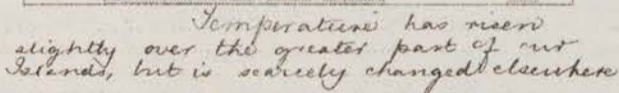 Temperature has risen
slightly over the greater part of our
Islands, but is scarcely changed elsewhere